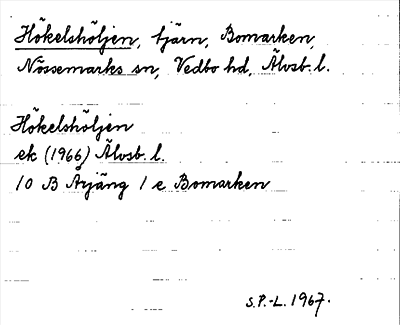 Hökelshöljen, tjärn, Bomarken,
Nössemarks sn, Vedbo hd, Älvsb. l.
Hökelshöljen
ek (1966) Älvsb. l.
10 B Årjäng 1 e Bomarken
S.P.-L. 1967.